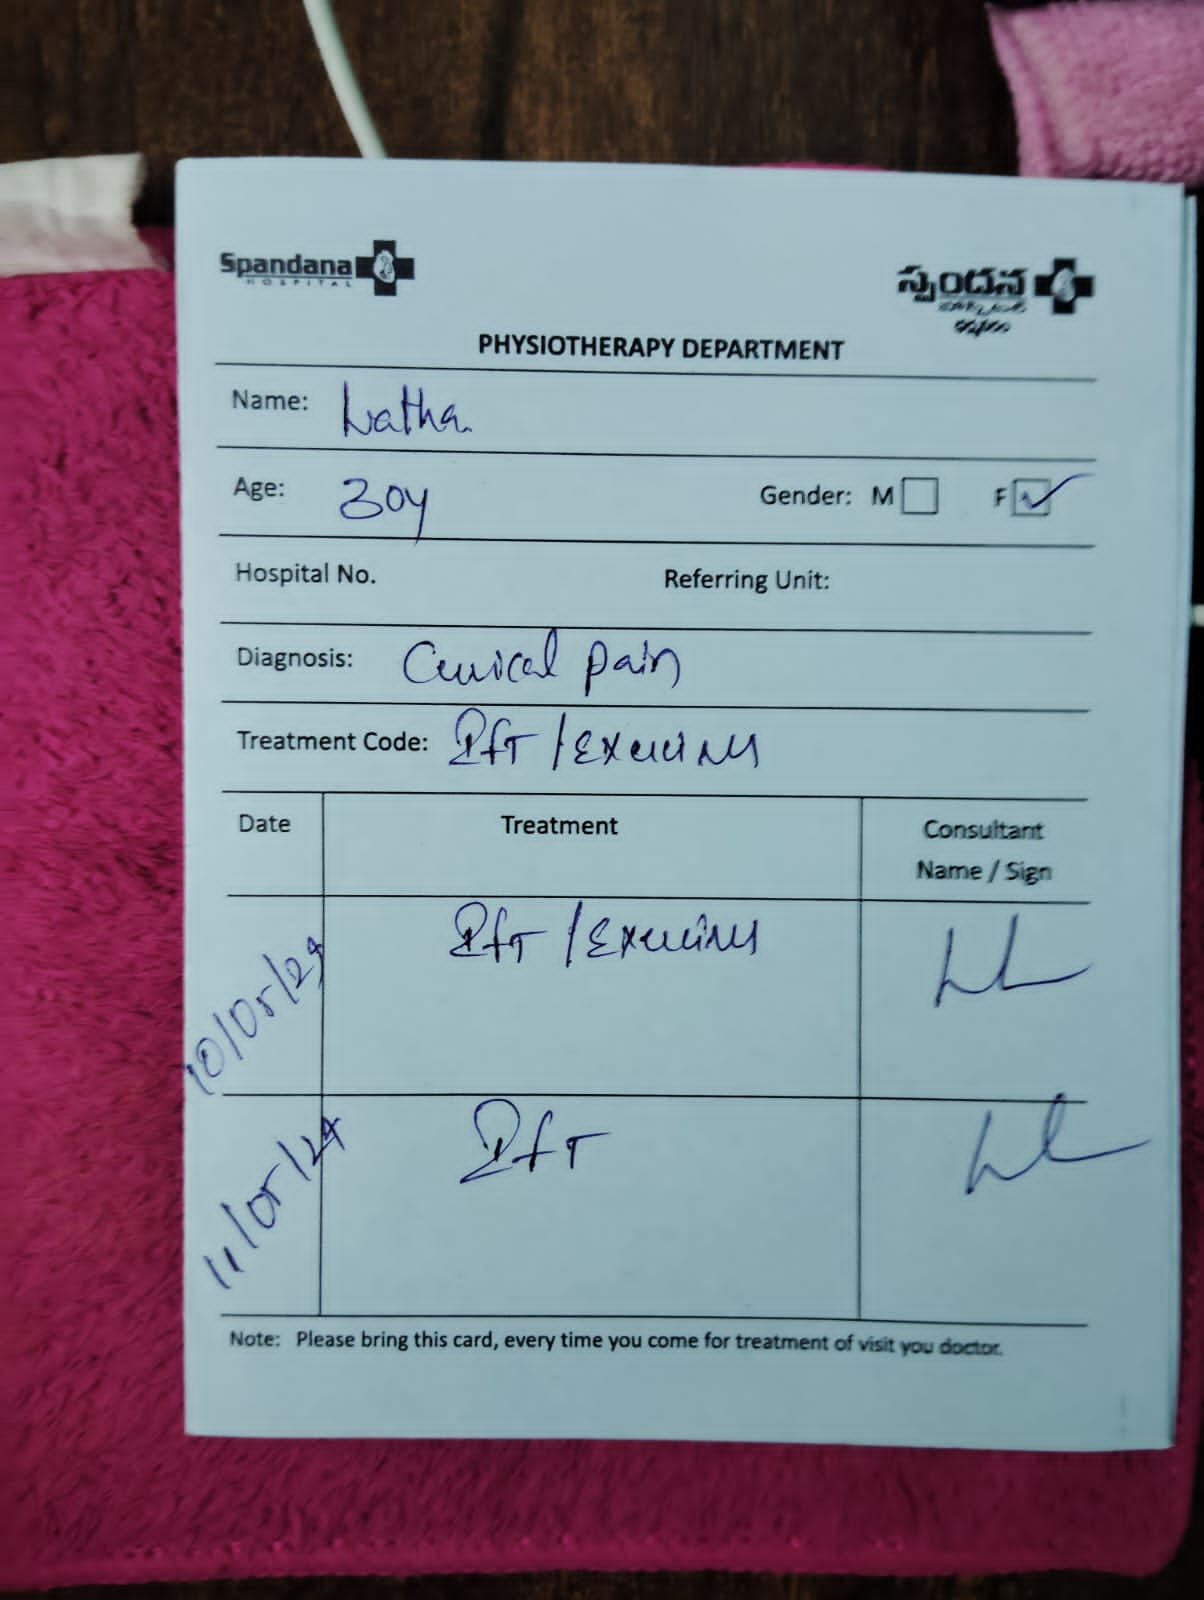 Spandana
HOSPITAL
స్పందన
PHYSIOTHERAPY DEPARTMENT
Name: Latha
Age: 30y Gender: M F
Hospital No. Referring Unit:
Diagnosis: Cervical pain
Treatment Code: IfT / Exercises
Date Treatment Consultant
Name / Sign
10/05/24 IfT / Exercises
11/05/24 IfT
Note: Please bring this card, every time you come for treatment of visit you doctor.